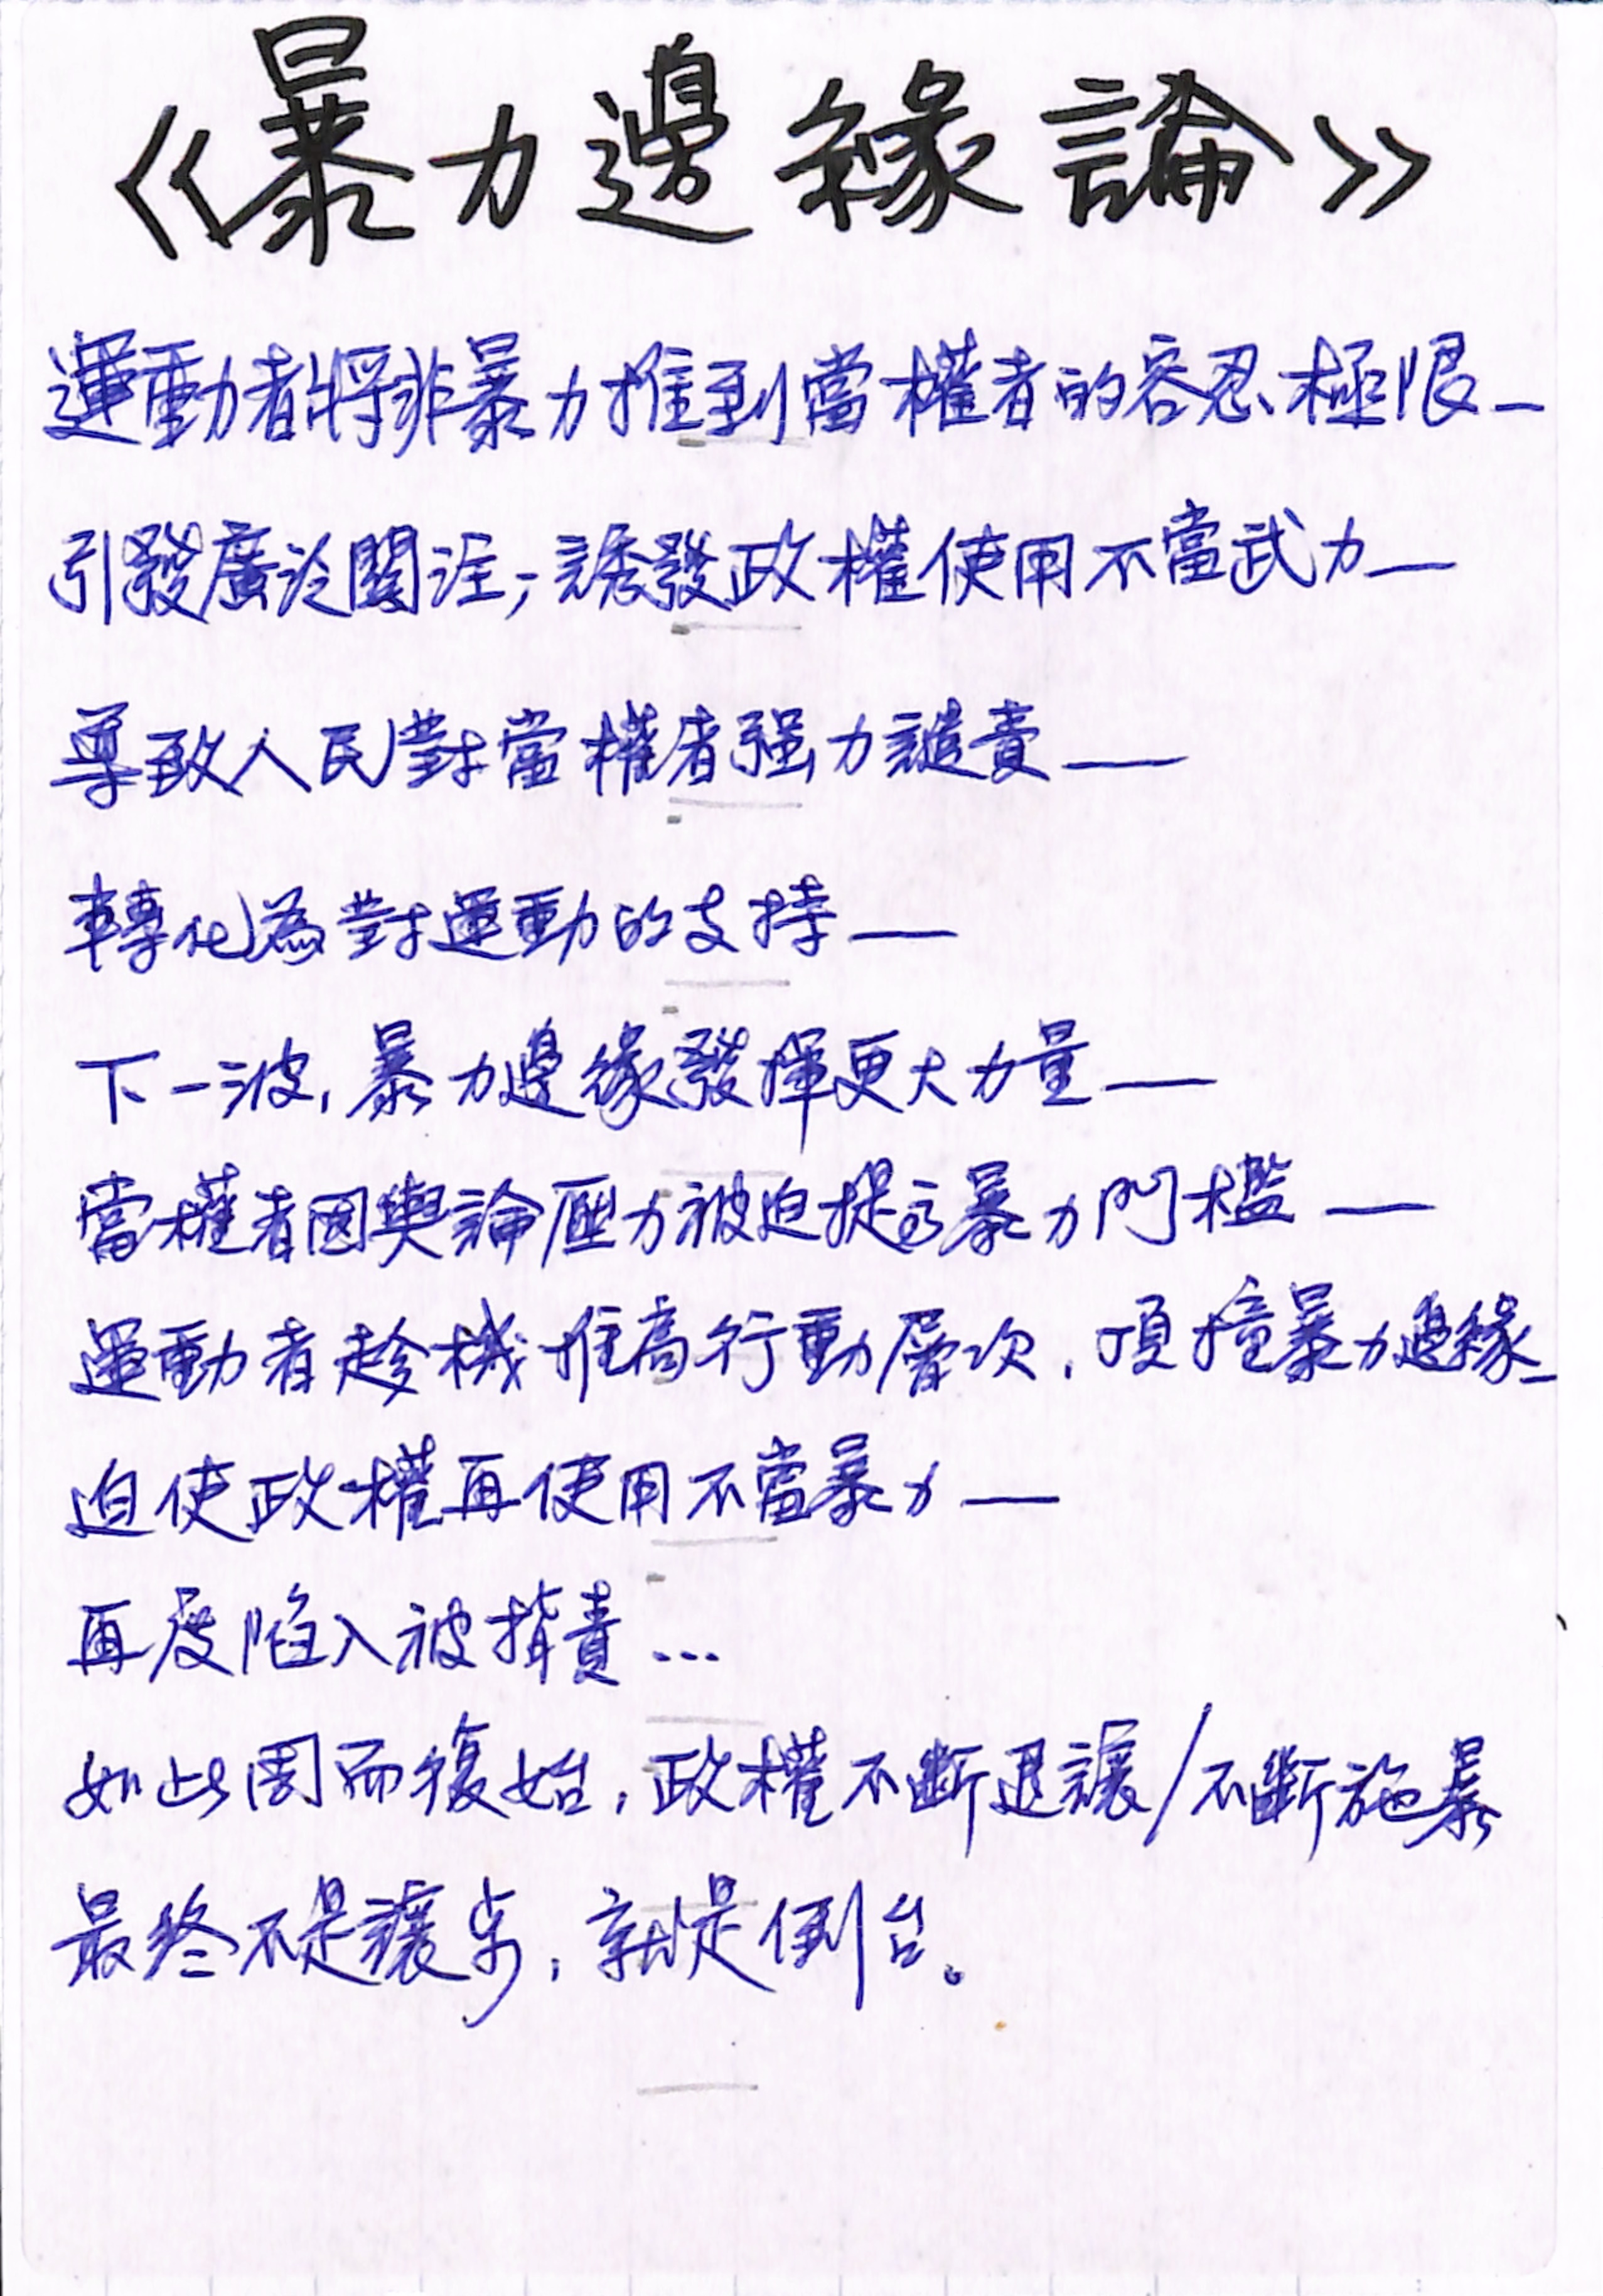 《暴力邊緣論》
運動者將非暴力推到當權者的容忍極限—
引發廣泛關注，誘發政權使用不當武力—
導致人民對當權者強力譴責—
轉化為對運動的支持—
下一波，暴力邊緣發揮更大力量—
當權者因輿論壓力被迫提高暴力門檻—
運動者趁機推高行動層次，頂撞暴力邊緣—
迫使政權再使用不當暴力—
再度陷入被指責…
如此周而復始，政權不斷退讓/不斷施暴
最終不是讓步，就是倒台。